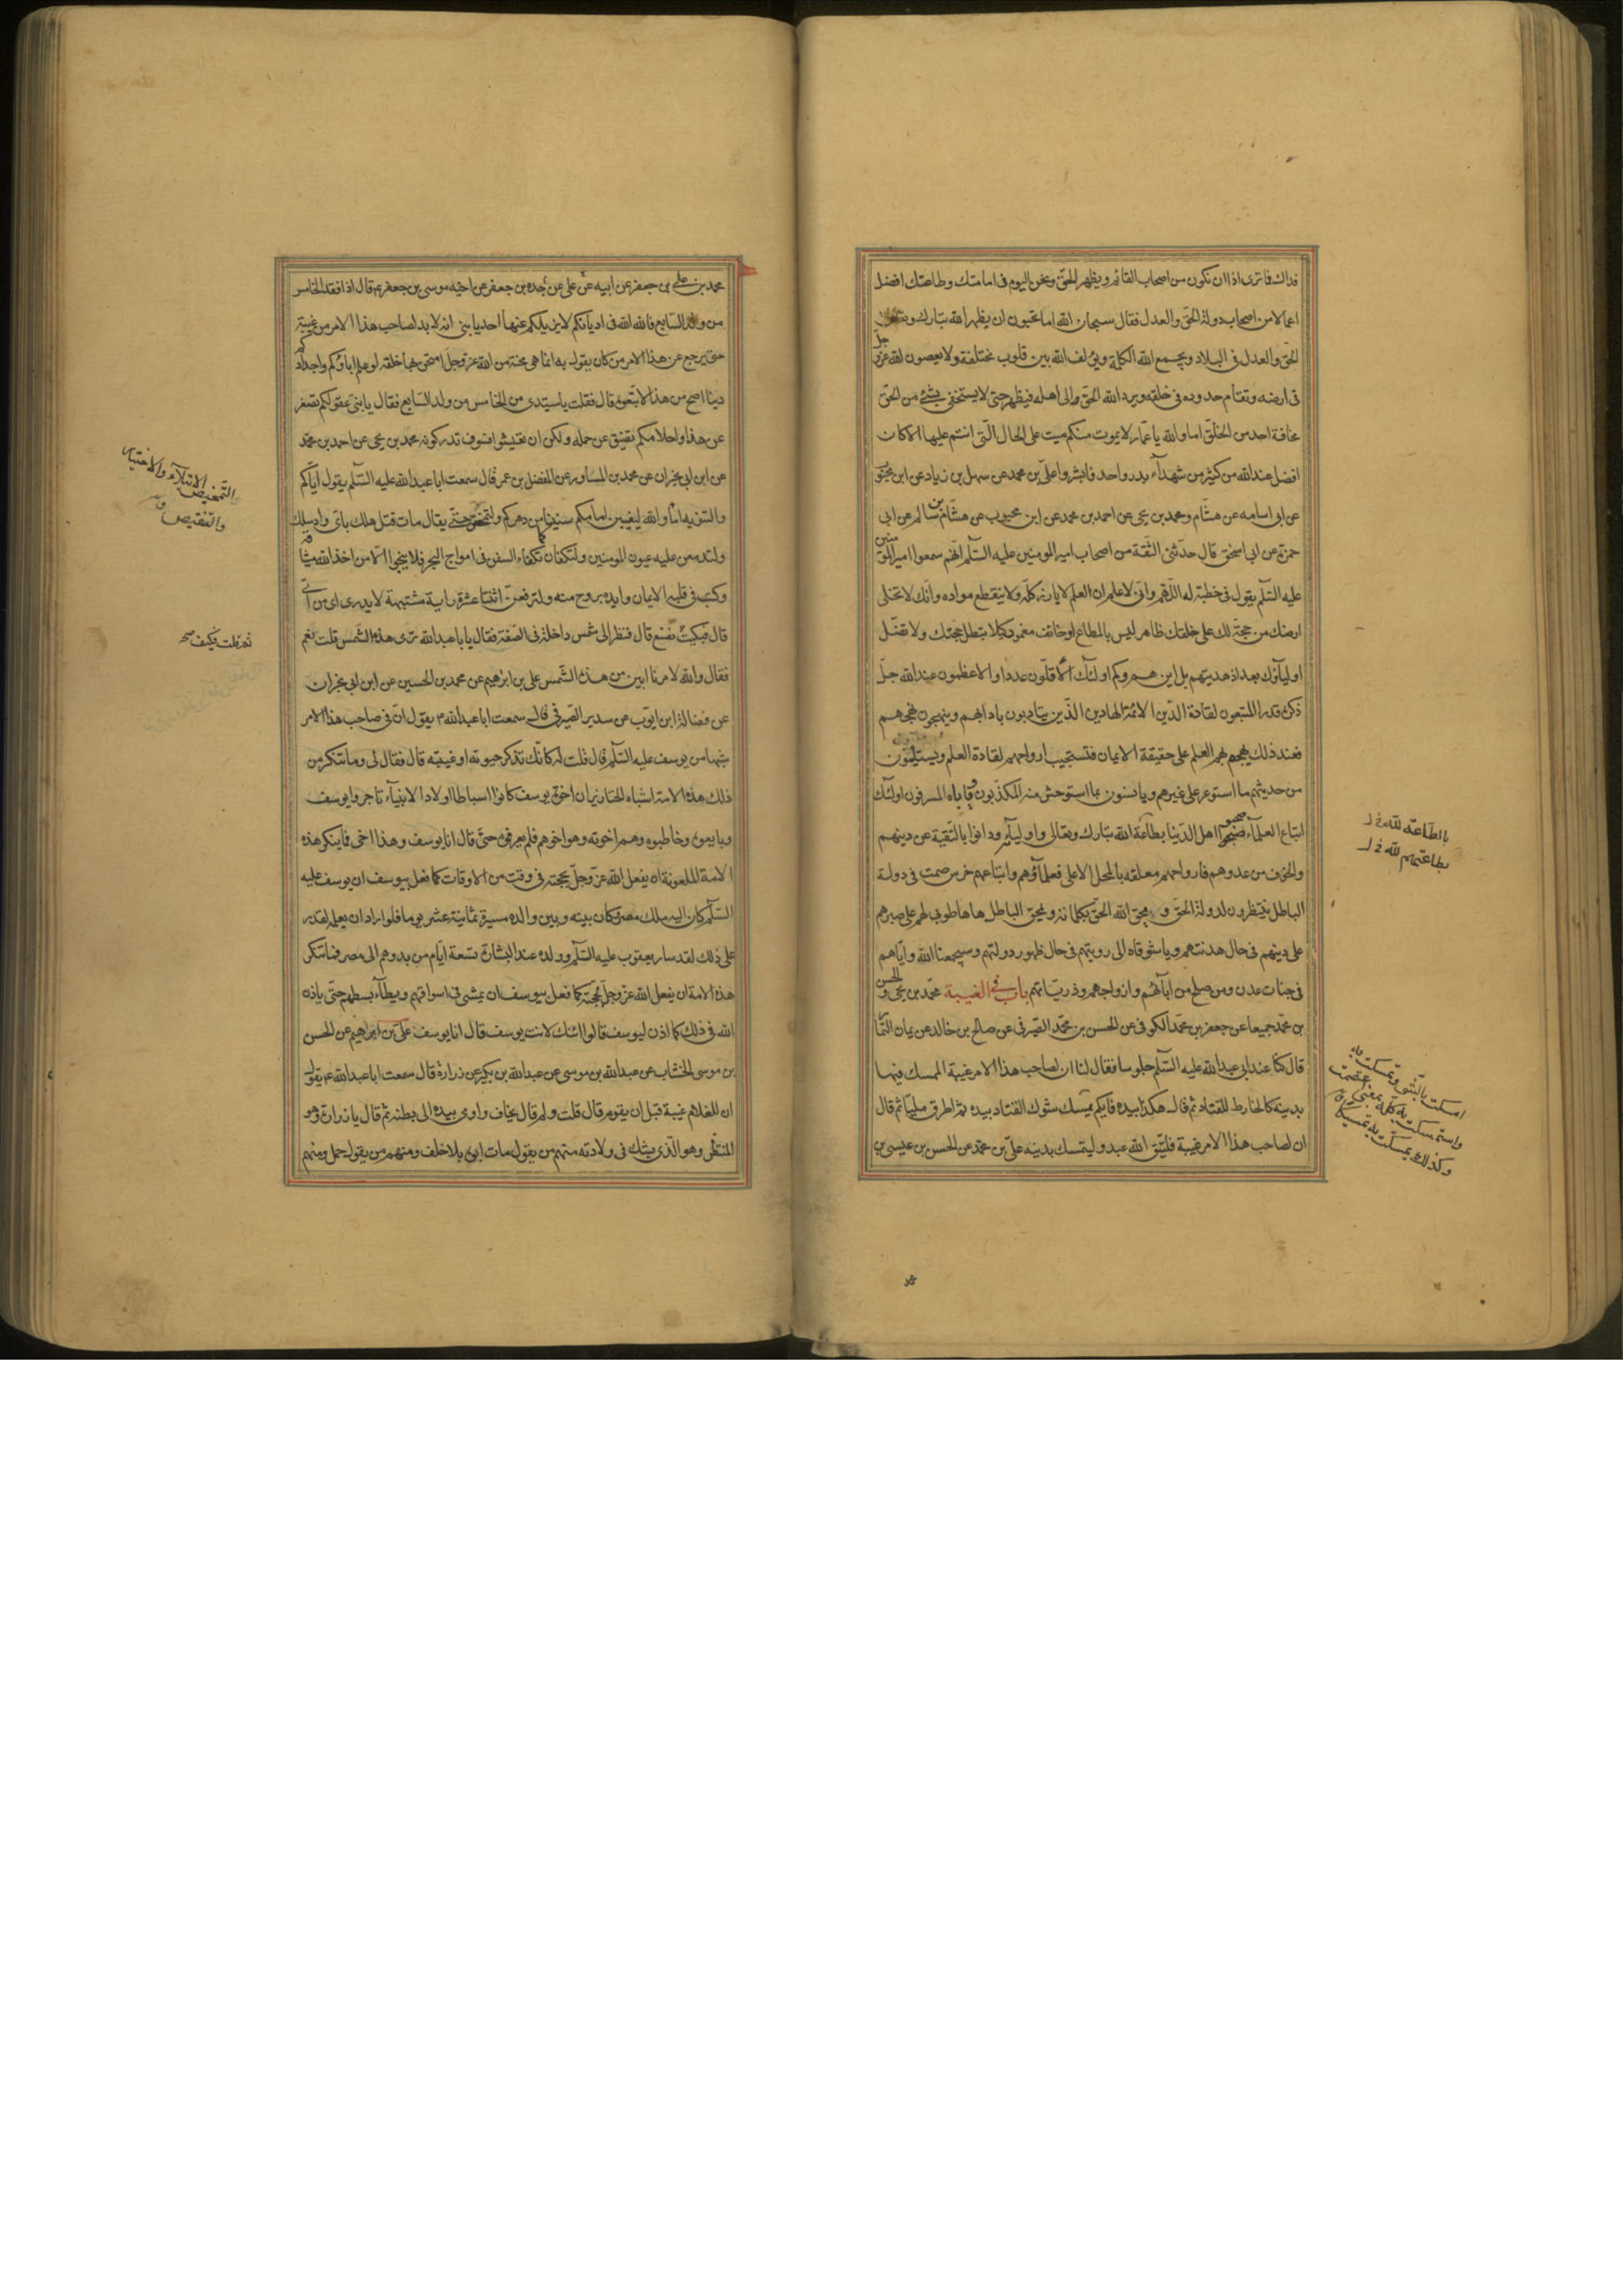 فداك فما ترى اذا ان نكون من اصحاب القائم ويظهر الحق ونحن اليوم فى امامتك وطاعتك افضل
اعمالا من اصحاب دولة الحق والعدل فقال سبحان الله اما تحبون ان يظهر الله تبارك وتعالى
الحق والعدل فى البلاد ويجمع الله الكلمة ويؤلف الله بين قلوب مختلفة ولا يعصون الله عز وجل
فى ارضه وتقام حدوده فى خلقه ويرد الله الحق الى اهله فيظهر حتى لا يستخفى بشئ من الحق
مخافة احد من الخلق اما والله يا عمار لا يموت منكم ميت على الحال التى انتم عليها الا كان
افضل عند الله من كثير من شهداء بدر واحد فابشروا على بن محمد عن سهل بن زياد عن ابن محبوب
عن ابى اسامه عن هشام ومحمد بن يحى عن احمد بن محمد عن ابن محبوب عن هشام بن سالم عن ابى
حمزة عن ابى اسحق قال حدثنى الثقة من اصحاب امير المومنين عليه السلم انهم سمعوا امير المومنين
عليه السلم يقول فى خطبة له اللهم وانى لاعلم ان العلم لا يارز كله ولا ينقطع مواده وانك لا تخلى
ارضك من حجة لك على خلقك ظاهر ليس بالمطاع او خائف مغمور كيلا تبطل حجتك ولا تضل
اولياؤك بعد اذ هديتهم بل اين هم وكم اولئك الاقلون عددا والاعظمون عند الله جل
ذكره قدرا المتبعون لقادة الدين الائمة الهادين الذين يتادبون بادابهم وينهجون نهجهم
فعند ذلك يهجم بهم العلم على حقيقة الايمان فتستجيب ارواحهم لقادة العلم ويستلينون
من حديثهم ما استوعر على غيرهم ويانسون بما استوحش منه المكذبون واباه المسرفون اولئك
اتباع العلماء صحبوا اهل الدنيا بطاعة الله تبارك وتعالى واوليائه ودانوا بالتقية عن دينهم
والخوف من عدوهم فارواحهم معلقة بالمحل الاعلى فعلماؤهم واتباعهم خرس صمت فى دولة
الباطل ينتظرون لدولة الحق و يحق الله الحق بكلماته ويمحق الباطل ها ها طوبى لهم على صبرهم
على دينهم فى حال هدنتهم ويا شوقاه الى رويتهم فى حال ظهور دولتهم وسيجمعنا الله واياهم
فى جنات عدن ومن صلح من ابائهم وازواجهم وذرياتهم باب فى الغيبة محمد بن يحى والحسن
بن محمد جميعا عن جعفر بن محمد الكوفى عن الحسن بن محمد الصيرفى عن صالح بن خالد عن يمان التمار
قال كنا عند ابى عبد الله عليه السلم جلوسا فقال لنا ان لصاحب هذا الامر غيبة المتمسك فيها
بدينه كالخارط للقتاد ثم قال هكذا بيده فايكم يمسك شوك القتاد بيده ثم اطرق مليا ثم قال
ان لصاحب هذا الامر غيبة فليتق الله عبد وليتمسك بدينه على بن محمد عن الحسن بن عيسى بن
بالطاعة لله خ ل
بطاعتهم لله خ ل
امسكت بالشئ وتمسكت به
واستمسكت به كله بمعنى اعتصمت
وكذلك مسكت به تمسيكا
محمد بن على بن جعفر عن ابيه عن على عن جده بن جعفر عن اخيه موسى بن جعفر ع قال اذا فقد الخامس
من ولد السابع فالله الله فى اديانكم لا يزيلكم عنها احد يا بنى انه لا بد لصاحب هذا الامر من غيبة
حتى يرجع عن هذا الامر من كان يقول به انما هى محنة من الله عز وجل امتحن بها خلقه لو علم اباؤكم واجدادكم
دينا اصح من هذا لاتبعوه قال فقلت يا سيدى من الخامس من ولد السابع فقال يا بنى عقولكم تصغر
عن هذا واحلامكم تضيق عن حمله ولكن ان تعيشوا فسوف تدركونه محمد بن يحى عن احمد بن محمد
عن ابن ابى نجران عن محمد بن المساور عن المفضل بن عمر قال سمعت ابا عبد الله عليه السلم يقول اياكم
والتنويه اما والله ليغيبن امامكم سنينا من دهركم ولتمحص حتى يقال مات قتل هلك باى واد سلك
ولتدمعن عليه عيون المومنين ولتكفان كما تكفاء السفن فى امواج البحر فلا ينجوا الا من اخذ الله ميثاقه
وكتب فى قلبه الايمان وايده بروح منه ولترفعن اثنتا عشرة راية مشتبهة لا يدرى اى من اى
قال فبكيت فكيف نصنع قال فنظر الى شمس داخلة فى الصفة فقال يا ابا عبد الله ترى هذه الشمس قلت نعم
فقال والله لامرنا ابين من هذه الشمس على بن ابرهيم عن محمد بن الحسين عن ابن ابى نجران
عن فضالة ابن ايوب عن سدير الصيرفى قال سمعت ابا عبد الله ع يقول ان فى صاحب هذا الامر
شبها من يوسف عليه السلم قال قلت له كانك تذكر حيوته او غيبته قال فقال لى وما تنكر من
ذلك هذه الامة اشباه الخنازير ان اخوة يوسف كانوا اسباطا اولاد الانبياء تاجروا يوسف
وبايعوه وخاطبوه وهم اخوته وهو اخوهم فلم يعرفوه حتى قال انا يوسف وهذا اخى فما ينكر هذه
الامة الملعونة ان يفعل الله عز وجل بحجته فى وقت من الاوقات كما فعل بيوسف ان يوسف عليه
السلم كان اليه ملك مصر وكان بينه وبين والده مسيرة ثمانية عشر يوما فلو اراد ان يعلمه لقدر
على ذلك لقد سار يعقوب عليه السلم وولده عند البشارة تسعة ايام من بدوهم الى مصر فما تنكر
هذه الامة ان يفعل الله عز وجل بحجته كما فعل بيوسف ان يمشى فى اسواقهم ويطاء بسطهم حتى ياذن
الله فى ذلك كما اذن ليوسف قالوا ائنك لانت يوسف قال انا يوسف على بن ابراهيم عن الحسن
بن موسى الخشاب عن عبد الله بن موسى عن عبد الله بن بكير عن زرارة قال سمعت ابا عبد الله ع يقول
ان للغلام غيبة قبل ان يقوم قال قلت ولم قال يخاف واومى بيده الى بطنه ثم قال يا زرارة وهو
المنتظر وهو الذى يشك فى ولادته منهم من يقول مات ابوه بلا خلف ومنهم من يقول حمل ومنهم
التمحيص الابتلاء والاختبار
والتنقيص
ثم قلت فكيف صح